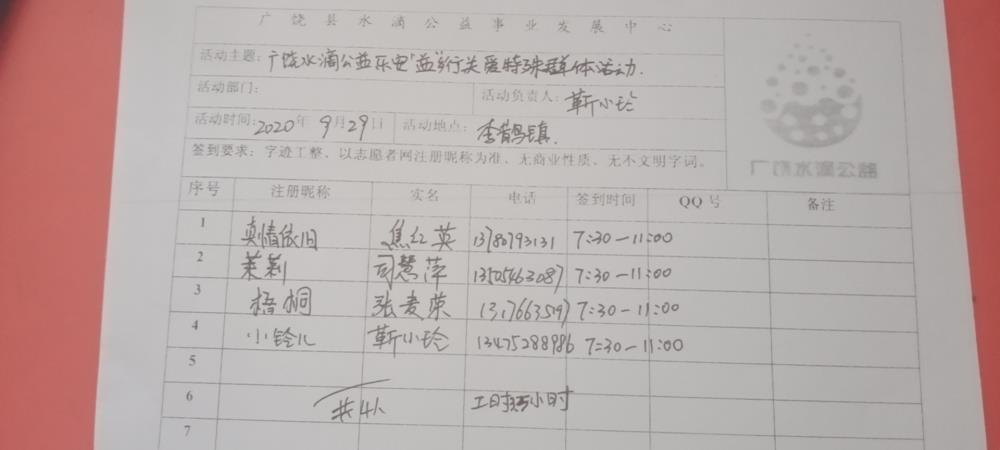 广饶县水滴公益事业发展中心
活动主题：广饶水滴公益乐安“益”行关爱特殊群体活动.
活动部门： 活动负责人：靳小玲
活动时间：2020年9月29日 活动地点：李鹊镇
签到要求：字迹工整、以志愿者网注册昵称为准、无商业性质、无不文明字词。
广饶水滴公益
序号 注册昵称 实名 电话 签到时间 QQ号 备注
1 真情依旧 焦红英 7:30-11:00
2 茉莉 司慧萍 13505463087 7:30-11:00
3 梧桐 张麦荣 7:30-11:00
4 小铃儿 靳小玲 13475288986 7:30-11:00
5
6 共4人
7